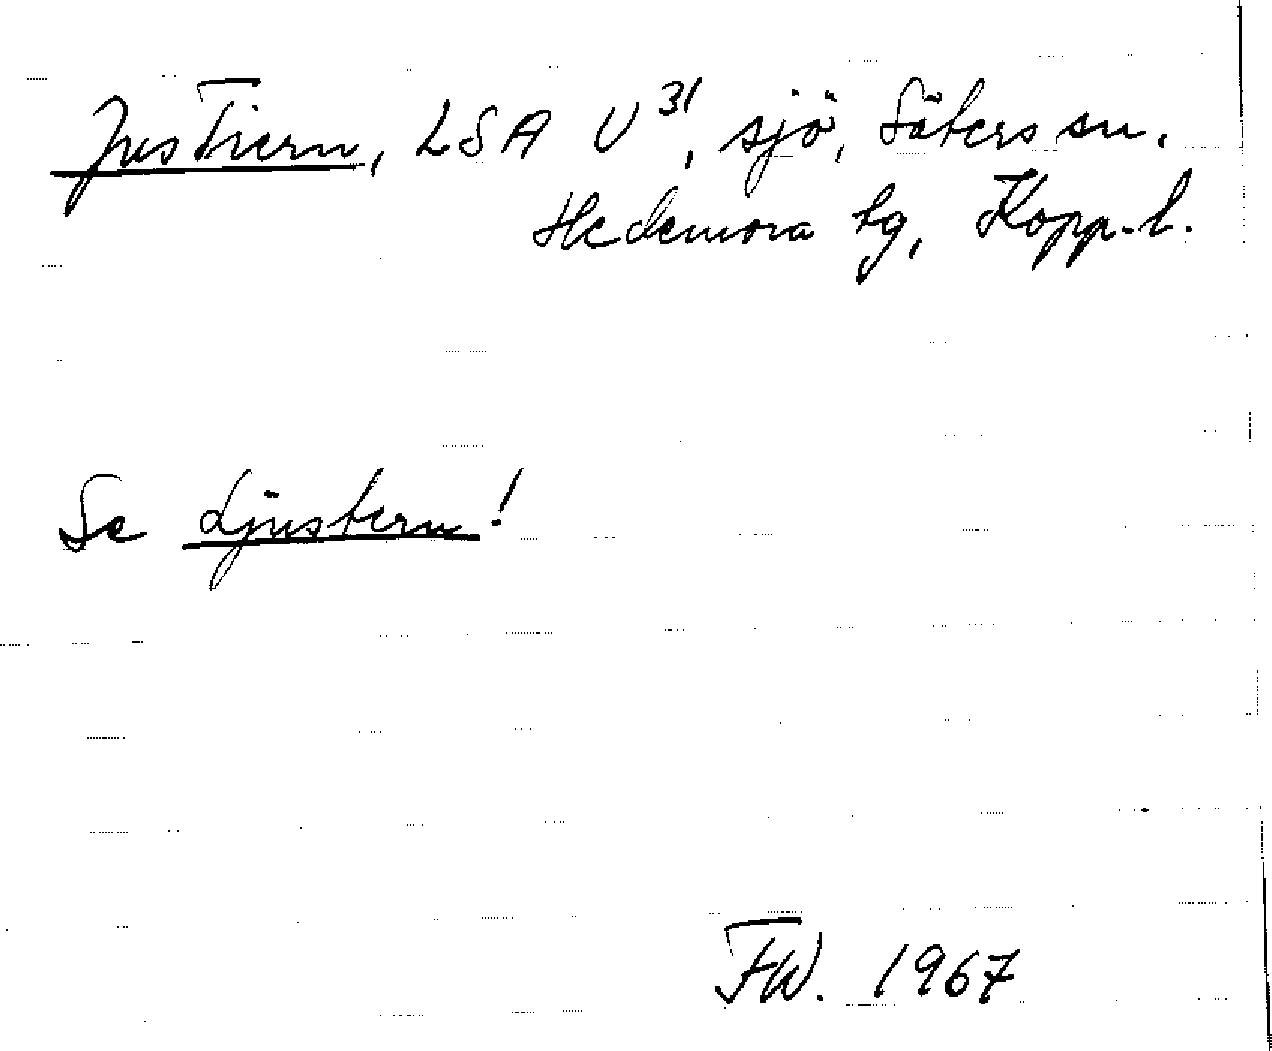 Justiern, LSA U³¹, sjö, Säters sn.
Hedemora tg, Kopp. l.
Se Ljustern!
FW. 1967